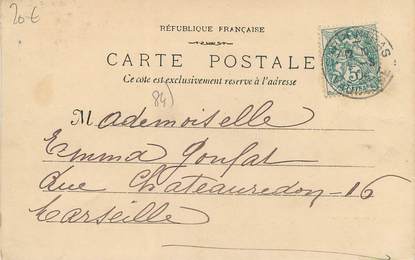 20 €
RÉPUBLIQUE FRANÇAISE
CARTE POSTALE
Ce côté est exclusivement réservé à l'adresse
84)
Mademoiselle
Emma Goufat
rue Chateauredon - 16
Marseille